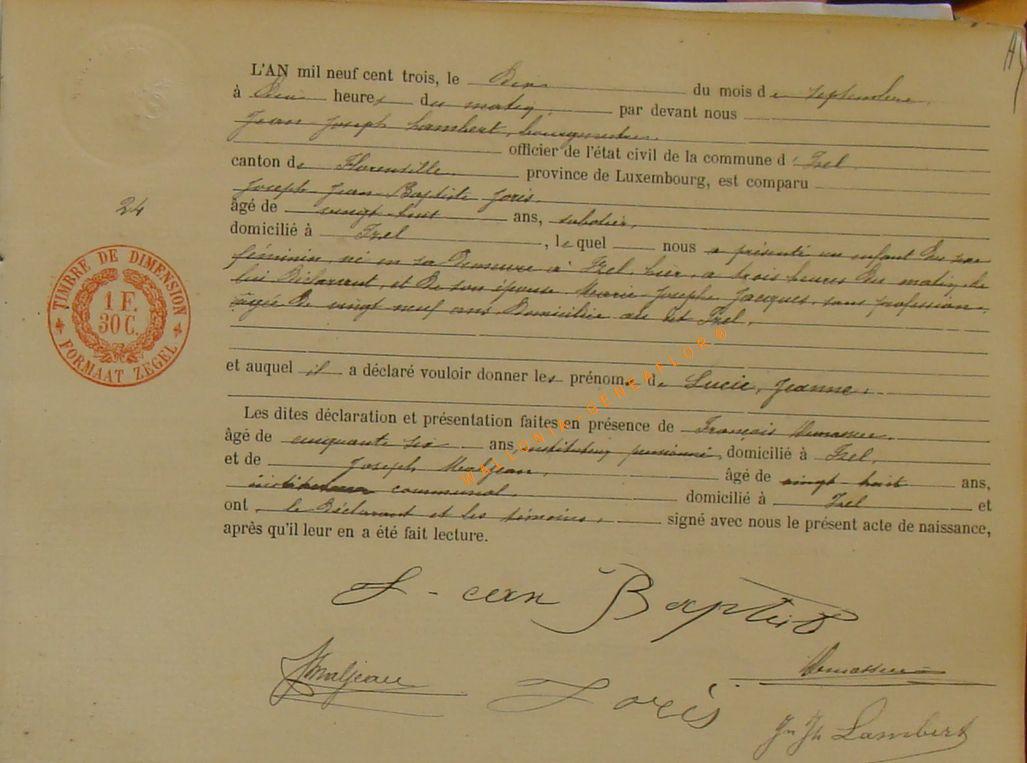 L'AN mil neuf cent trois, le Deux du mois de septembre
à Dix heures du matin par devant nous
Jean Joseph Lambert, bourgmestre
officier de l'état civil de la commune d'Izel
canton de Florenville province de Luxembourg, est comparu
Joseph Jean Baptiste Joris
24
âgé de vingt huit ans, sabotier,
domicilié à Izel, lequel nous a présenté un enfant du sexe
féminin, né en sa Demeure à Izel, hier, à trois heures Du matin, de
lui Déclarant, et De son épouse Marie Josephe Jacques, sans profession,
âgée De vingt neuf ans Domiciliée au dit Izel.
TIMBRE DE DIMENSION
1 F.
30 C.
FORMAAT ZEGEL
et auquel il a déclaré vouloir donner les prénoms de Lucie, Jeanne.
Les dites déclaration et présentation faites en présence de François
âgé de cinquante six ans instituteur pensionné, domicilié à Izel,
et de Joseph Maljean, âgé de vingt huit ans,
instituteur communal domicilié à Izel et
ont le Déclarant et les témoins, signé avec nous le présent acte de naissance,
après qu'il leur en a été fait lecture.
WALLONIA-GENEAFLOR®
J-ean Baptist
JMaljean
Joris
Jn Jh Lambert